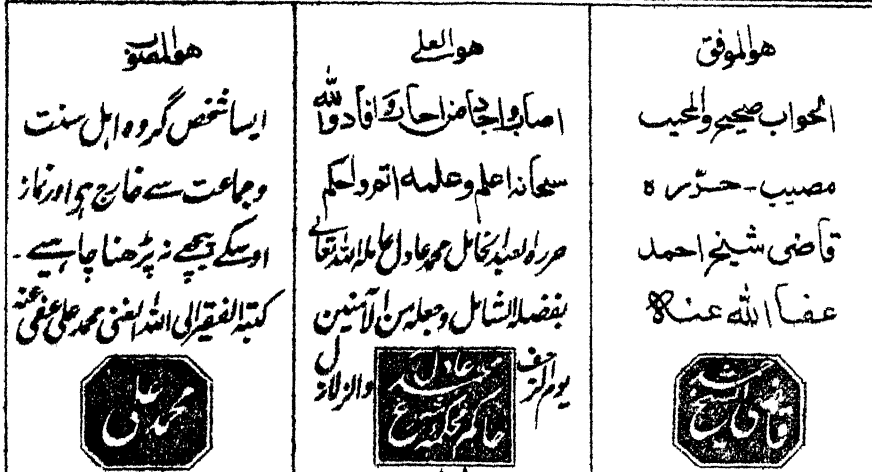 هو الموفق
الجواب صحیح والمجیب
مصیب - حرّره
قاضی شیخ احمد
عفا الله عنه
قاضی شیخ
هو العلی
اصاب واجاد من اجاب وافاد والله
سبحانه اعلم وعلمه اتم واحکم
حرره العبد الخامل محمد عادل عامله الله تعالی
بفضله الشامل وجعله من الآمنین
یوم الزحف والزلازل
محمد عادل
حاکم محکمه شرع
هو المصوب
ایسا شخص گروه اهل سنت
و جماعت سے خارج ہو اور نماز
اوسکے پیچھے نہ پڑھنا چاہیے۔
کتبه الفقیر الی الله الغنی محمد علی عفی عنه
محمد علی